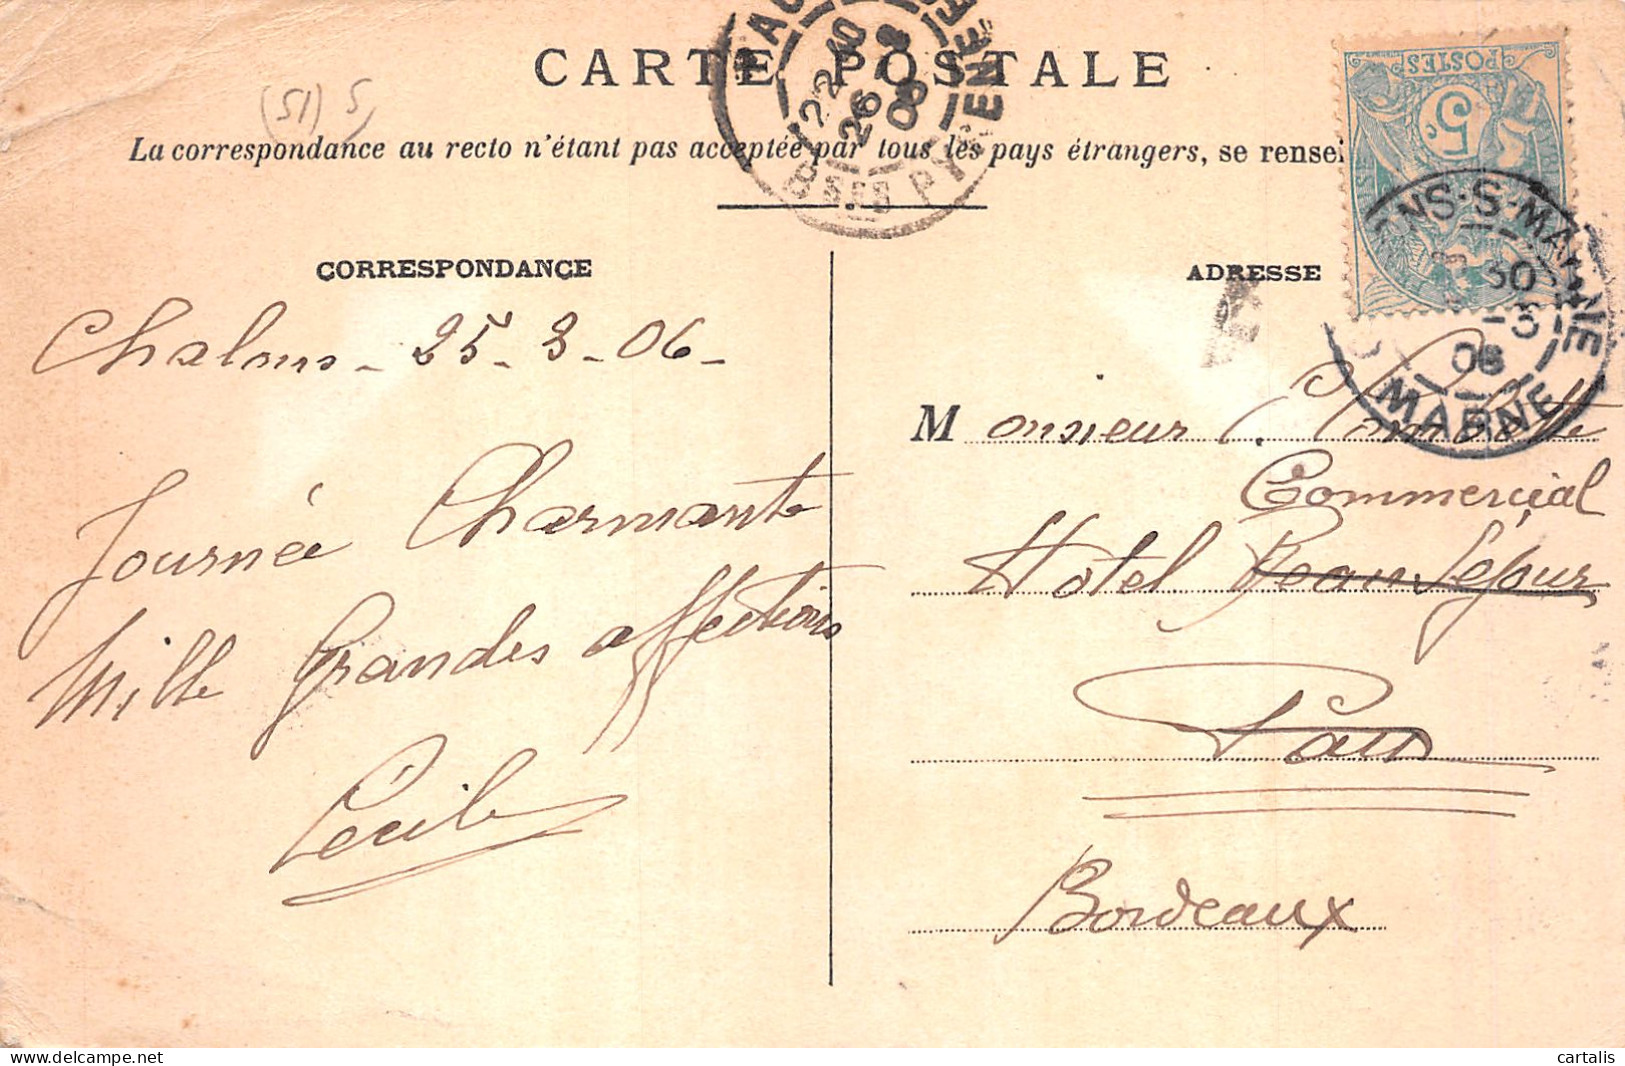 CARTE POSTALE
(51) 5
La correspondance au recto n'étant pas acceptée par tous les pays étrangers, se rensei
CORRESPONDANCE
Chalons - 25 - 3 - 06 -
Journée Charmante
Mille Grandes affections
Cécile
ADRESSE
Monsieur
Commercial
Hotel Beau Séjour
Pau
Bordeaux
POSTES
5c
NS-S-MARNE
30
06
MARNE
22 40
26
06
Bses PYRENEES
cartalis